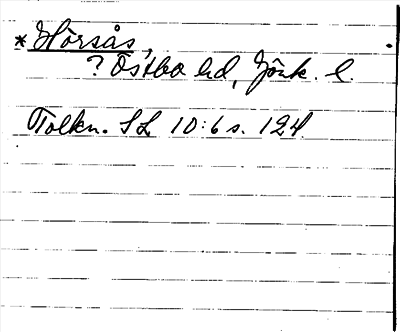 * Hörsås,
? Östbo hd, Jönk. l.
Tolkn. SL 10:6 s. 124